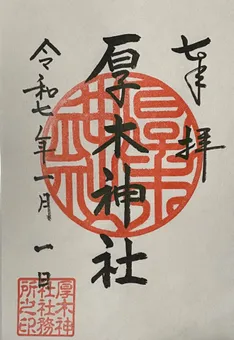 奉拝
厚木神社
令和七年一月一日
厚木神
社社務
所之印